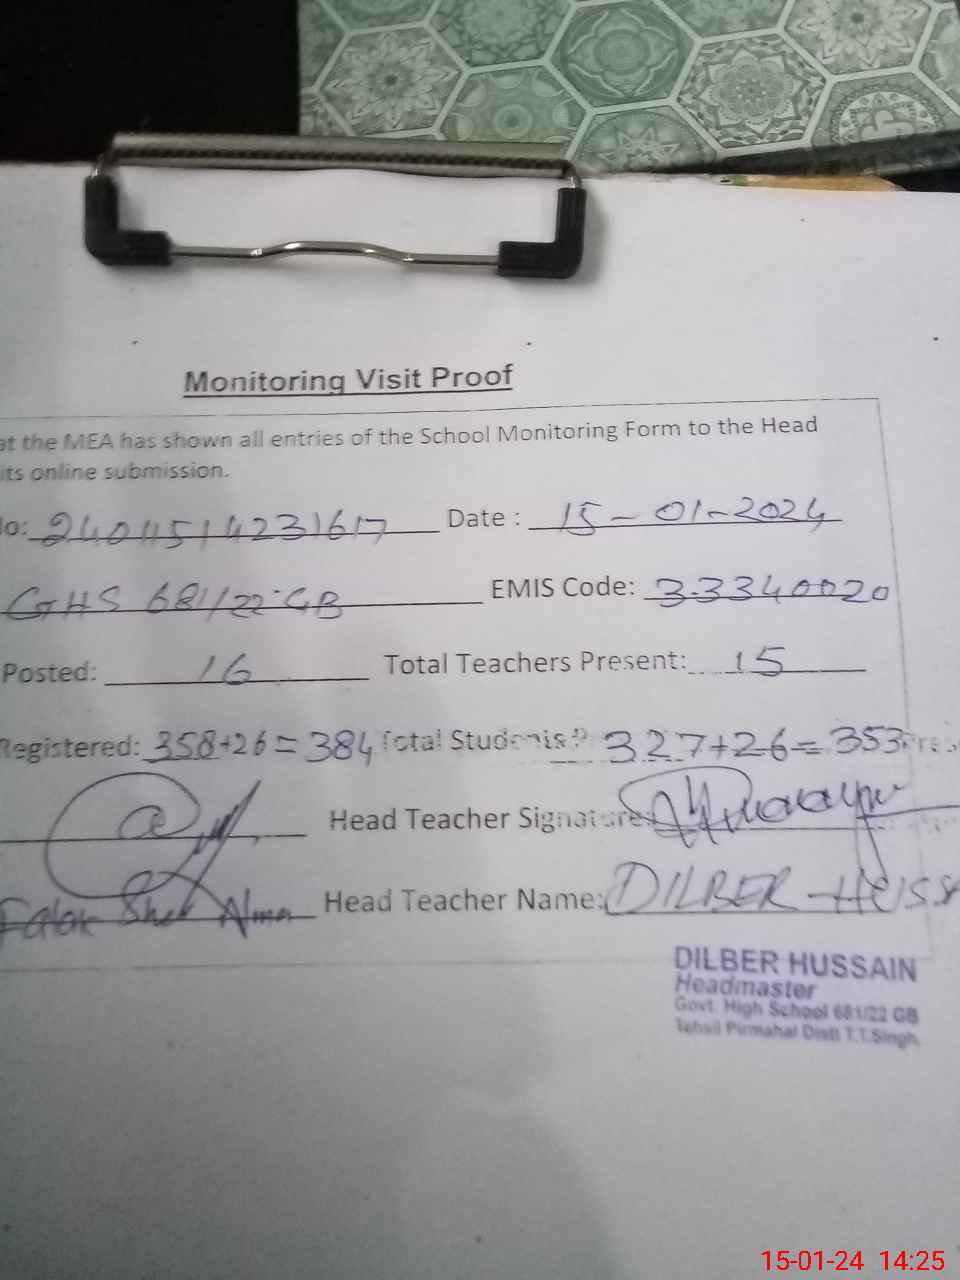 Monitoring Visit Proof
at the MEA has shown all entries of the School Monitoring Form to the Head
its online submission.
lo: 24011514231617 Date : 15-01-2024
GHS 681/22 GB EMIS Code: 33340020
Posted: 16 Total Teachers Present: 15
Registered: 358+26=384 Total Students 327+26=353 Pres
Head Teacher Signature
Head Teacher Name: DILBER HUSS
DILBER HUSSAIN
Headmaster
Govt. High School 681/22 GB
Tehsil Pirmahal Distt T.T.Singh
15-01-24 14:25